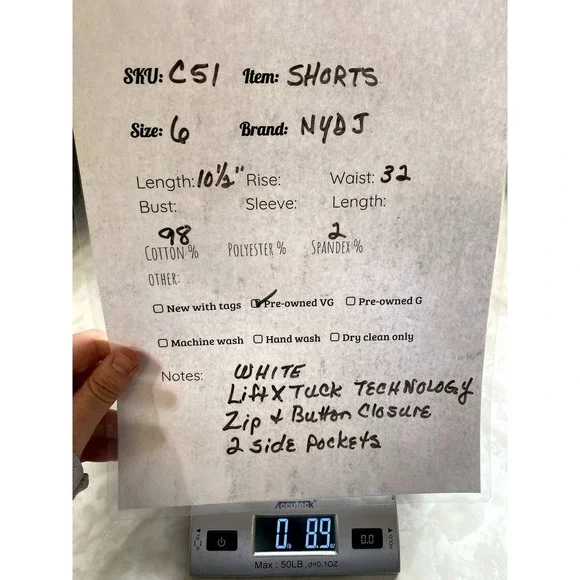 SKU: C51 Item: SHORTS
Size: 6 Brand: NYDJ
Length: 10½" Rise: Waist: 32
Bust: Sleeve: Length:
98 2
COTTON % POLYESTER % SPANDEX %
OTHER:
New with tags Pre-owned VG Pre-owned G
Machine wash Hand wash Dry clean only
Notes: WHITE
Lift X Tuck TECHNOLOGY
Zip & Button Closure
2 side Pockets
Accuteck
0 lb 8.9 oz
0.0
Max : 50LB d=0.1OZ